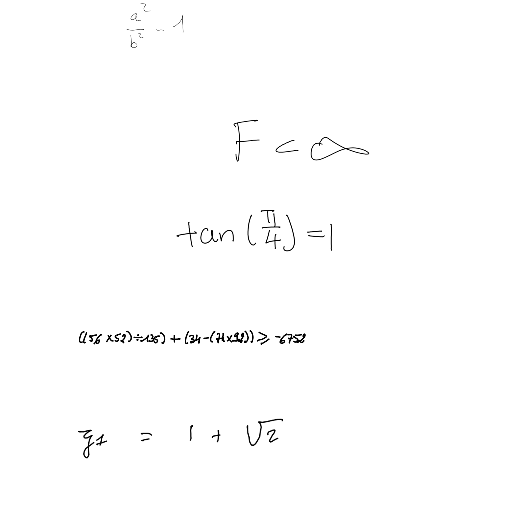 a²/b² - 1
F < ∞
tan(π/4) = 1
((56 × 52) ÷ 135) + (34 - (71 × 92)) ≥ -6752
y₁ = 1 + √2